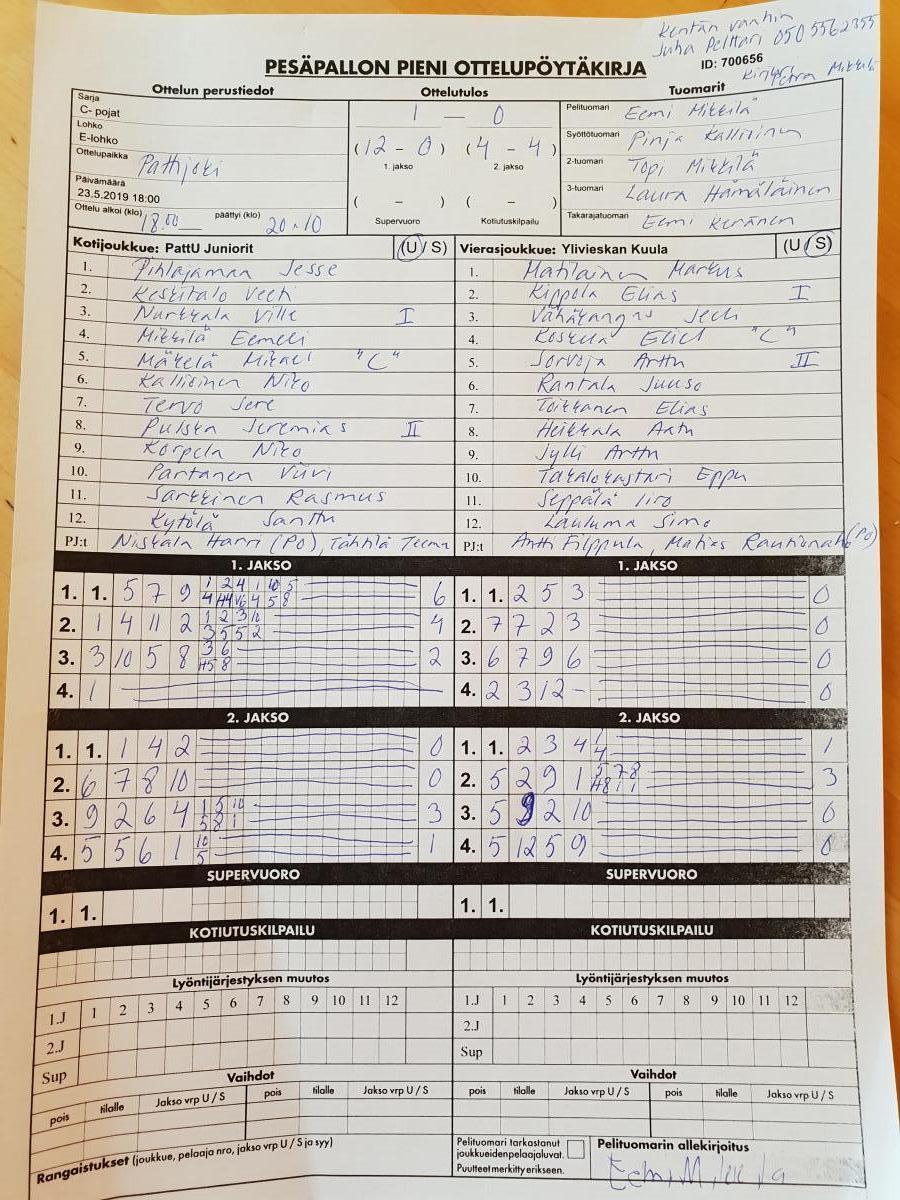 Kentän vanhin
Juha Pelttari 050 5562355
PESÄPALLON PIENI OTTELUPÖYTÄKIRJA
ID: 700656
Petra Mikkilä
Ottelun perustiedot
Ottelutulos
Tuomarit
Sarja
C- pojat
Lohko
E-lohko
Ottelupaikka Pattijoki
Päivämäärä
23.5.2019 18:00
Ottelu alkoi (klo) 18.00 päättyi (klo) 20.10
1 — 0
(12 - 0) (4 - 4)
1. jakso 2. jakso
( - ) ( - )
Supervuoro Kotiutuskilpailu
Pelituomari Eemi Mikkilä
Syöttötuomari Pinja Kallioinen
2-tuomari Topi Mikkilä
3-tuomari Laura Hämäläinen
Takarajatuomari Eemi Keränen
Kotijoukkue: PattU Juniorit (U / S)
1. Pihlajamaa Jesse
2. Keskitalo Veeti
3. Nurkkala Ville I
4. Mikkilä Eemeli
5. Mäkelä Mikael "C"
6. Kallioinen Niko
7. Tervo Jere
8. Pulska Jeremias II
9. Korpela Niko
10. Partanen Viivi
11. Sarkkinen Rasmus
12. Kytölä Santtu
PJ:t Niskala Harri (PO), Tähtilä Teemu
Vierasjoukkue: Ylivieskan Kuula (U / S)
1. Matilainen Markus
2. Kippola Elias I
3. Vähäkangas
4. "C"
5. Sorvoja Arttu II
6. Rantala Juuso
7. Toikkanen Elias
8. Heikkala Aatu
9. Jylli Arttu
10. Takalokastari Eppu
11. Seppälä Iiro
12. Lauluma Simo
PJ:t Antti Filppula, Matias (PO)
1. JAKSO
1. 1. 5 7 9 1 2 4 1 10 5 6
2. 1 4 11 2 4
3. 3 10 5 8 3 6 2
4. 1
1. JAKSO
1. 1. 2 5 3 0
2. 7 7 2 3 0
3. 6 7 9 6 0
4. 2 3 12 - 0
2. JAKSO
1. 1. 1 4 2 0
2. 6 7 8 10 0
3. 9 2 6 4 1 5 10 3
5 2 1
4. 5 5 6 1 10 1
5
2. JAKSO
1. 1. 2 3 4 1 1
4
2. 5 2 9 1 5 7 8 3
3. 5 9 2 10 0
4. 5 12 5 9 0
SUPERVUORO
1. 1.
SUPERVUORO
1. 1.
KOTIUTUSKILPAILU
KOTIUTUSKILPAILU
Lyöntijärjestyksen muutos
1.J 1 2 3 4 5 6 7 8 9 10 11 12
2.J
Sup
Lyöntijärjestyksen muutos
1.J 1 2 3 4 5 6 7 8 9 10 11 12
2.J
Sup
Vaihdot
pois tilalle Jakso vrp U / S pois tilalle Jakso vrp U / S
Vaihdot
pois tilalle Jakso vrp U / S pois tilalle Jakso vrp U / S
Rangaistukset (joukkue, pelaaja nro, jakso vrp U / S ja syy)
Pelituomari tarkastanut
joukkueidenpelaajaluvat.
Puutteet merkitty erikseen.
Pelituomarin allekirjoitus
Eemi Mikkilä